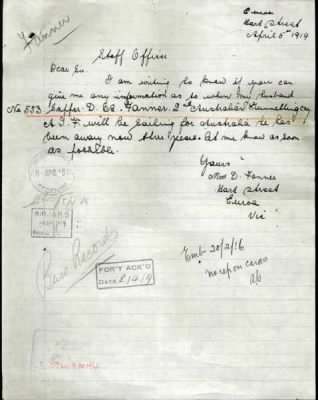 Fanner
Euroa
Hart Street
April 5th 1919
Staff Officer
Dear Sir.
I am writing to know if you can
give me any information as to when my husband
No 553 Sapper D. E. Fanner. 2nd Australian Tunnelling coy
A I F will be sailing for Australia he has
been away now three years. let me know as soon
as possible.
Yours
Mrs D. Fanner
Hart Street
Euroa
Vic
Base Records
FOR'Y ACK'D
DATE 8/4/19
Emb 20/2/16
no rep on cards